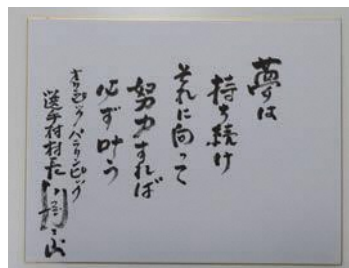 夢は
持ち続け
それに向って
努力すれば
必ず叶う
オリンピック/パラリンピック
選手村村長